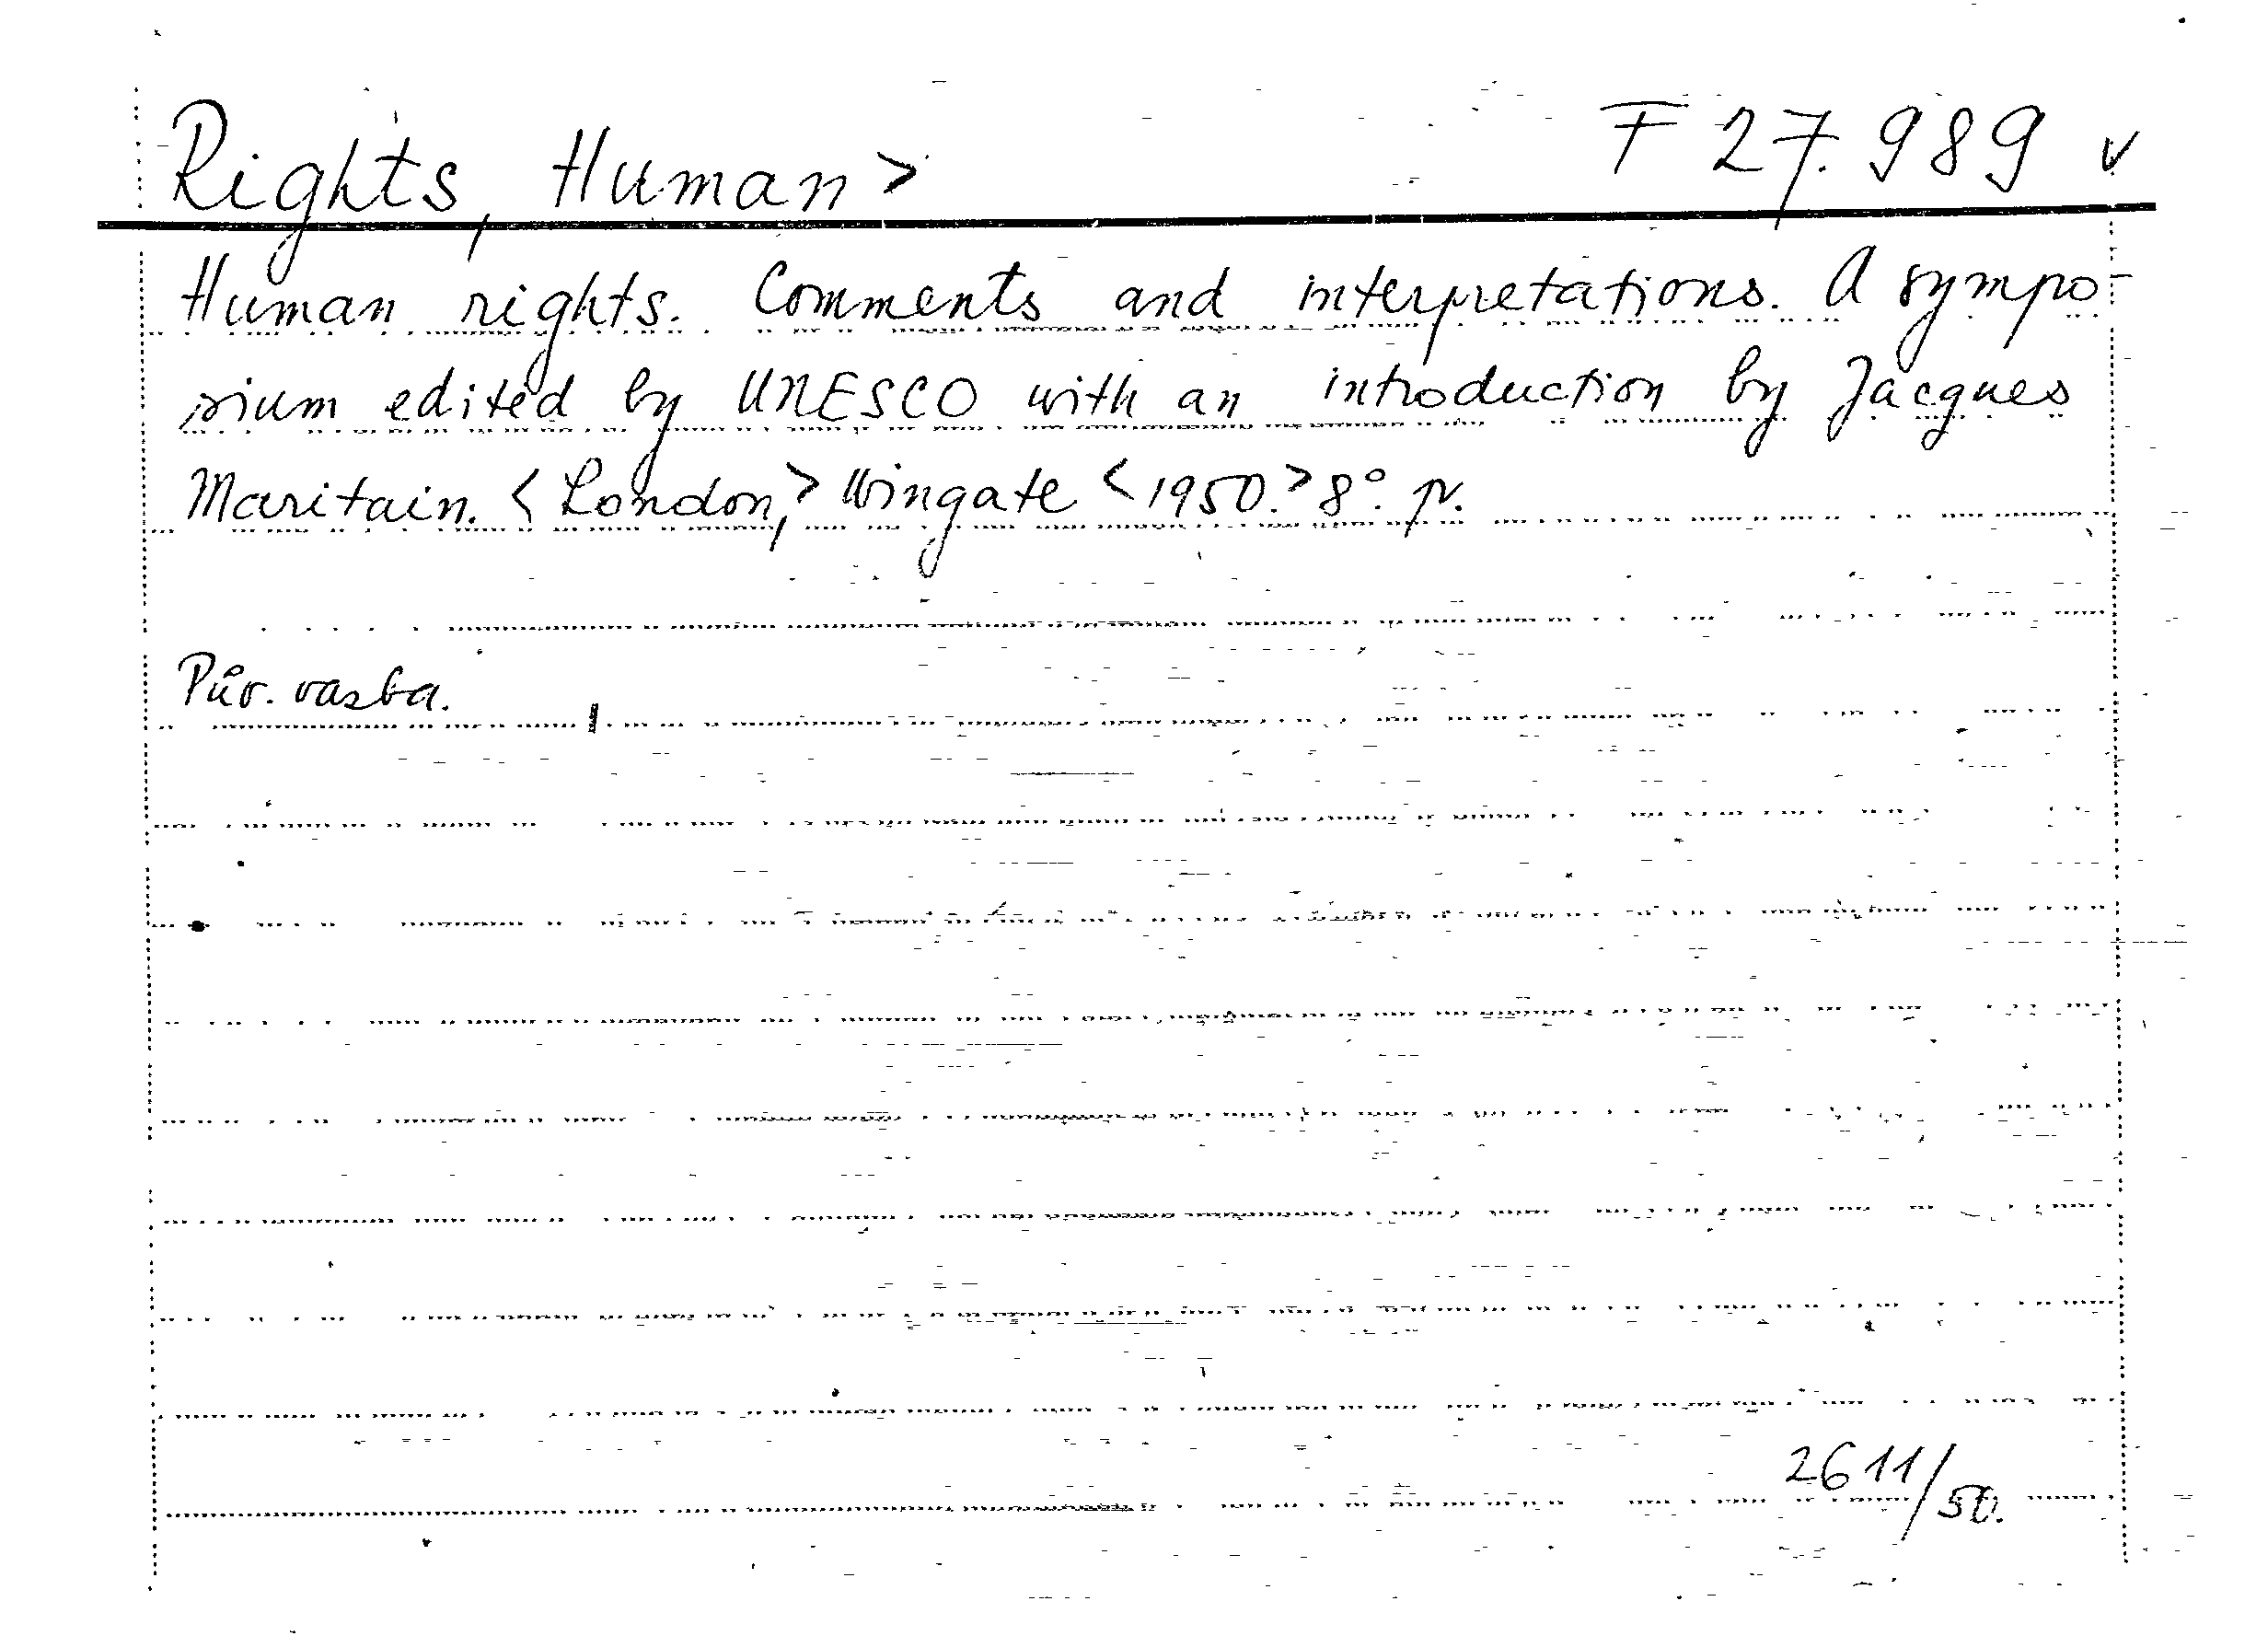 Rights, Human > F 27.989 v
Human rights. Comments and interpretations. A sympo-
sium edited by UNESCO with an introduction by Jacques
Maritain. <London,> Wingate <1950.> 8°. p.
Pův. vazba.
2611/50.